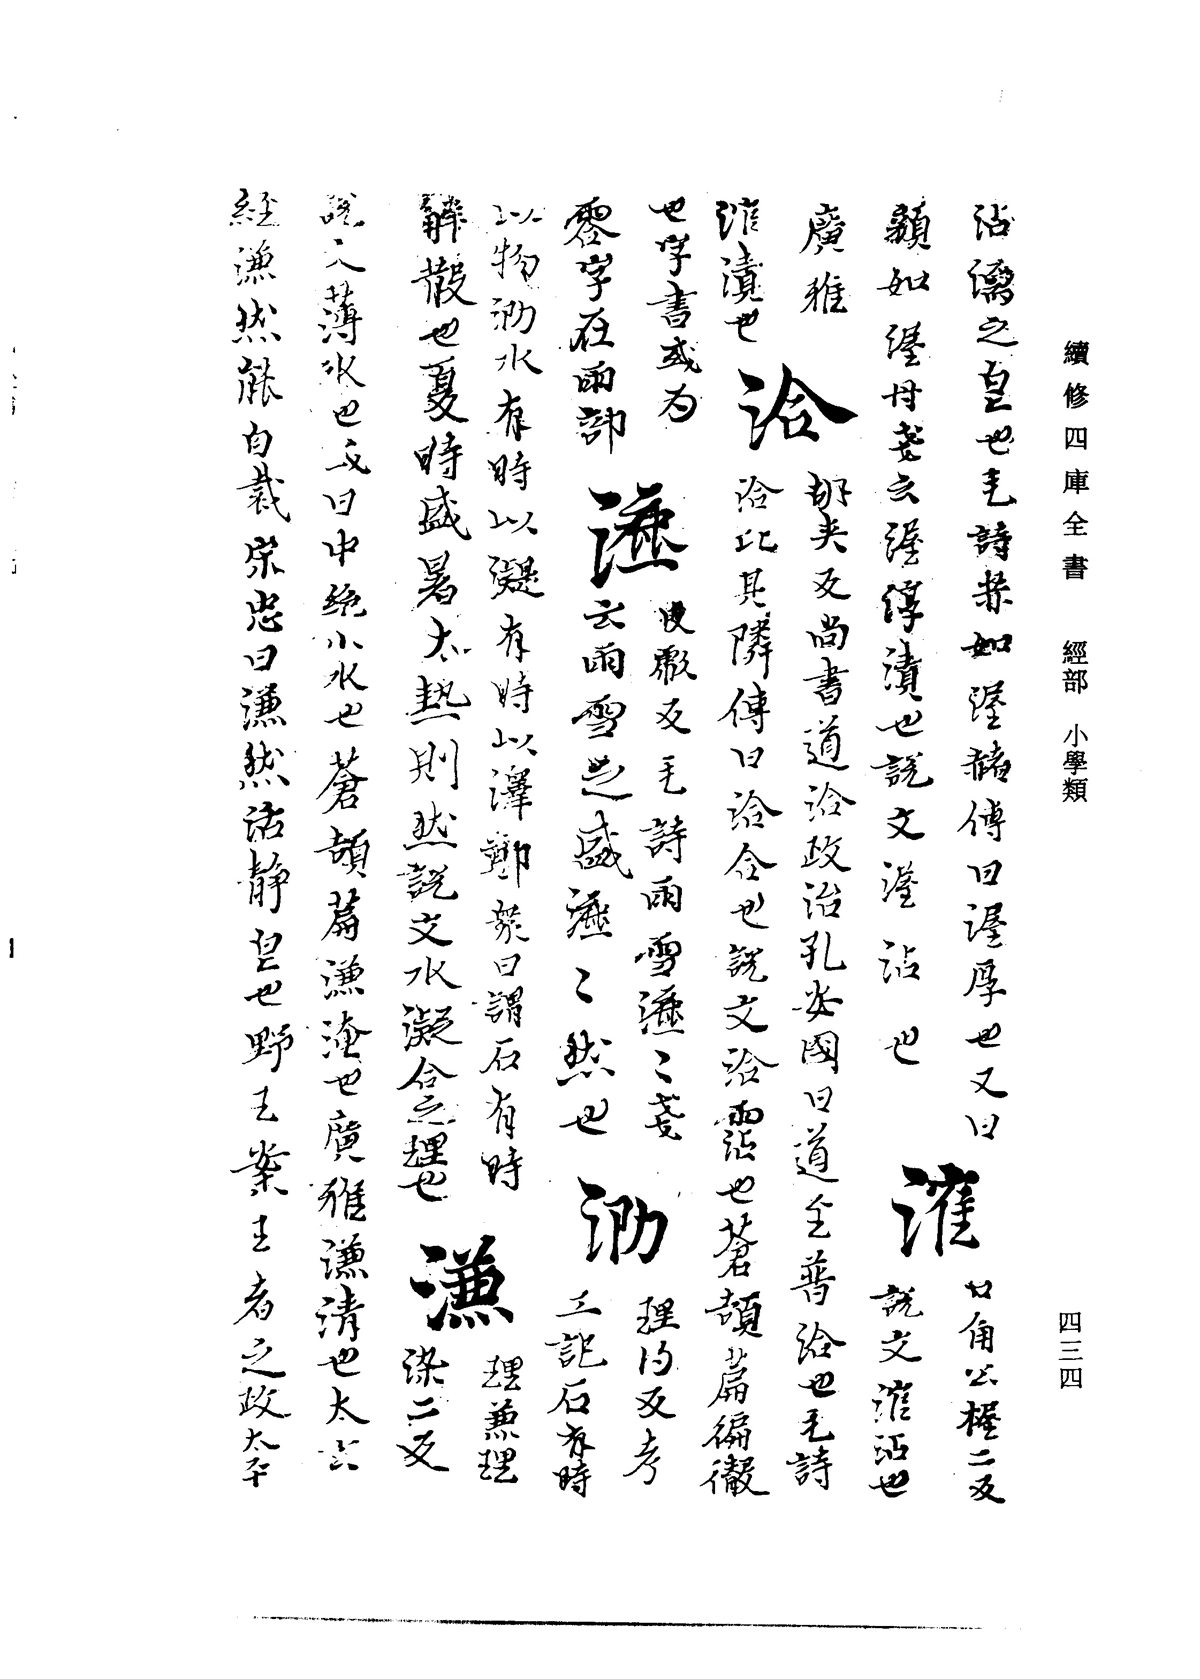 續修四庫全書 經部 小學類
四三四
沾濡之皃也毛詩恭如渥赭傳曰渥厚也又曰
顏如渥丹戔云渥淳漬也說文渥沾也
漼 口角公握二反
說文漼沾也
廣雅
漼漬也
洽 胡夾反尚書道洽政治孔安國曰道至普洽也毛詩
洽比其隣傳曰洽合也說文洽霑也蒼頡篇徧徹
也字書或為
零字在雨部
瀌 皮彪反毛詩雨雪瀌〻戔
云雨雪之盛瀌〻然也
泐 理得反考
工記石有時
以物泐水有時以凝有時以澤鄭衆曰謂石有時
解散也夏時盛暑太熱則然說文水凝合之理也
溓 理兼理
染二反
說文薄水也或曰中絶小水也蒼頡篇溓淹也廣雅溓清也太玄
經溓然能自裁宋忠曰溓然恬静皃也野王案王者之政太平